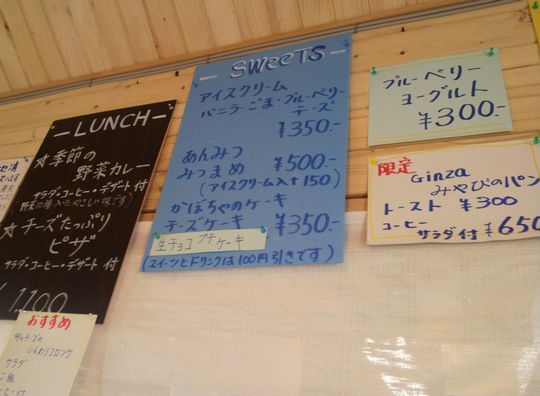 LUNCH
☆季節の
野菜カレー
サラダ・コーヒー・デザート付
☆チーズたっぷり
ピザ
サラダ・コーヒー・デザート付
¥1100
おすすめ
サラダ
SWEETS
アイスクリーム
バニラ・ごま・ブルーベリー
チーズ
¥350-
あんみつ
みつまめ ¥500-
(アイスクリーム入+150)
かぼちゃのケーキ
チーズケーキ ¥350-
生チョコプチケーキ
(スイーツとドリンクは100円引きです)
ブルーベリー
ヨーグルト
¥300-
限定
Ginza
みやびのパン
トースト ¥300
コーヒー
サラダ付 ¥650